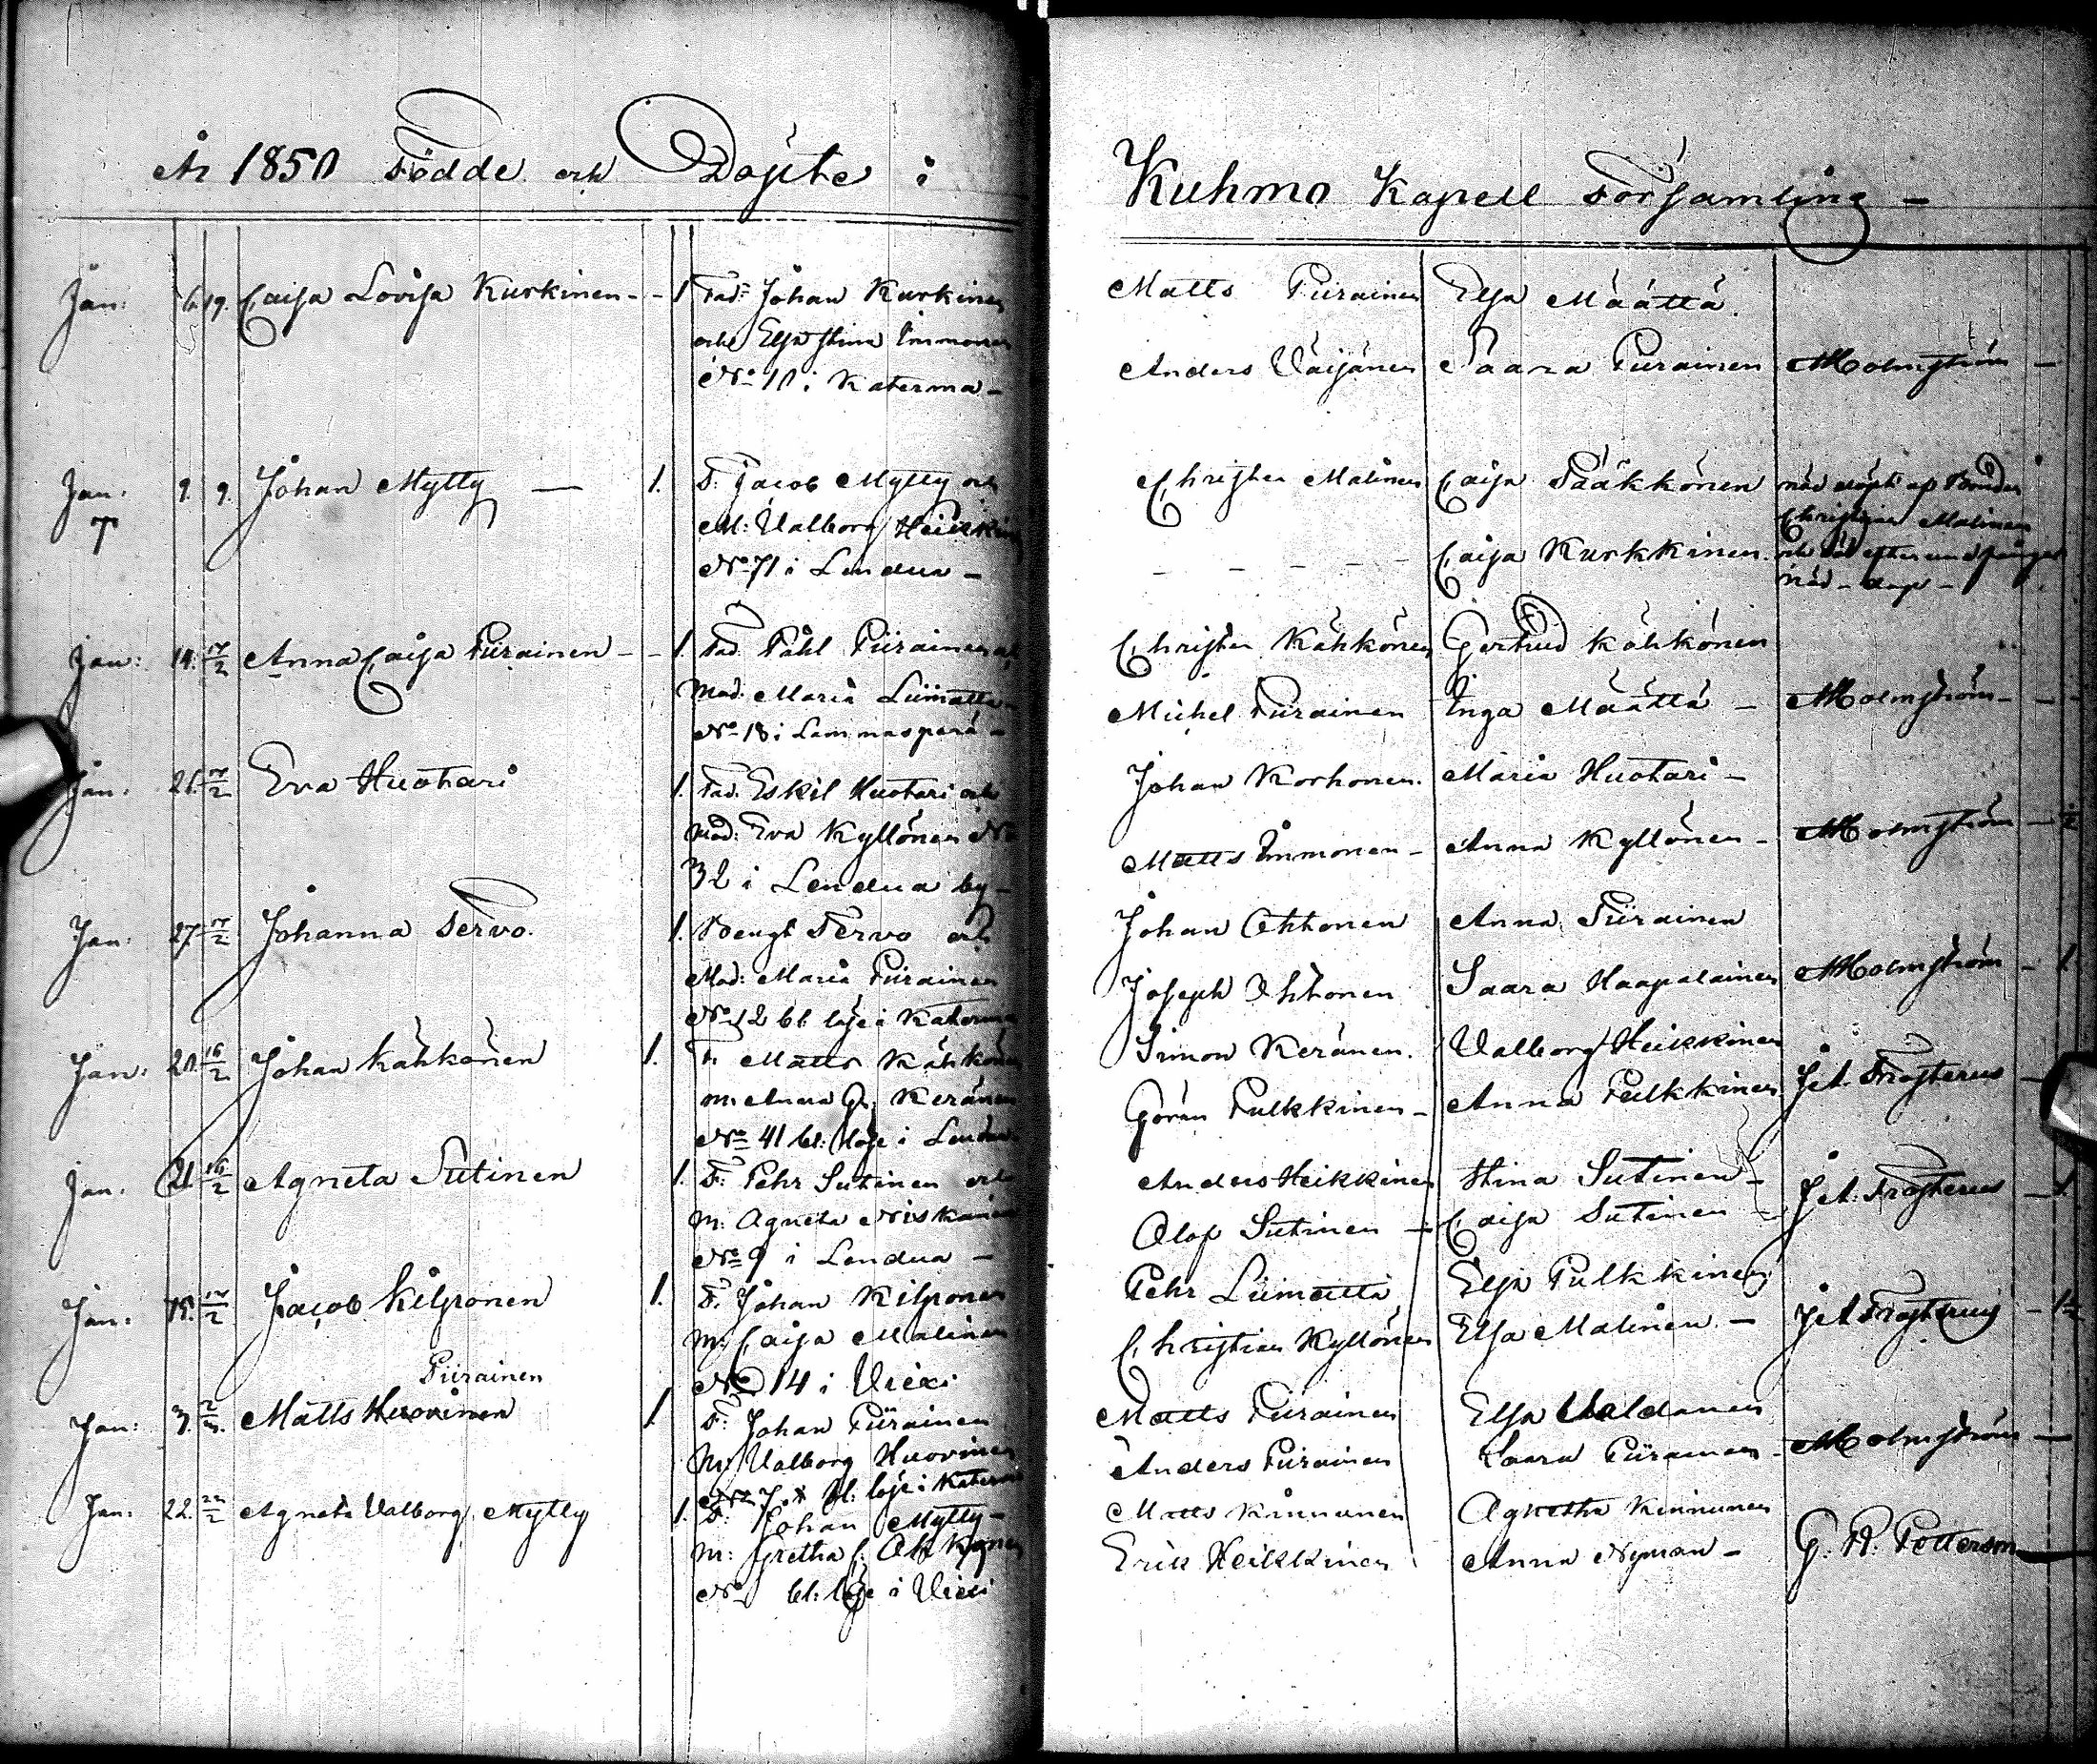 År 1850 Födde och Döpte i
Jan: 6. 19. Caisa Lovisa Kurkinen - - 1 Fad: Johan Kurkinen
och Elsa Stina Immonen
No 10 i Katerma -
Jan. 9. 9. Johan Mylly — 1. F. Jacob Mylly och
M: Valborg Heikkinen
No 71 i Lendua -
Jan: 14. 17/2 Anna Caisa Piirainen - - 1. Fad. Påhl Piirainen
Mod. Maria Liimatta
No 18 i Lammasperä -
Jan. 21. 17/2 Eva Huotari 1. Fad. Eskil Huotari och
Mod: Eva Kyllönen No
32 i Lendua by -
Jan. 27. 17/2 Johanna Tervo. 1. Bengt Tervo och
Mod: Maria Piirainen
No 12 bl löse i Katerma
Jan: 20. 16/2 Johan Kähkönen 1. F. Matts Kähkönen
m. Anna Keränen
No 41 bl: löse i Lendua
Jan. 21. 16/2 Agneta Sutinen 1. F: Pehr Sutinen och
M: Agneta Niskanen
No 9 i Lendua —
Jan. 15. 17/2 Jacob Kilponen 1. F. Johan Kilponen
M: Caisa Malinen
No 14 i Viexi
Piirainen
Jan: 3. 2/3. Matts Huovinen 1. F: Johan Piirainen
M: Valborg Huovinen
No 7 bl: löse i Katerma
Jan. 22. 22/2 Agneta Valborg Mylly 1. F: Johan Mylly -
m: Gretha C:
No bl: löse i Viexi
Kuhmo Kapell Församling -
Matts Piirainen Elsa Määttä.
Anders Väisänen Saara Piirainen Molmström —
Christer Malinen Caisa Pääkkönen nöd döpt af Bonden
Christer Malinen
- - - - - Caisa Kurkkinen.
nöd - dop -
Christer Kähkönen Gertrud Kähkönen
Michel Piirainen Inga Määttä - Molmström -
Johan Korhonen. Maria Huotari -
Matts Immonen - Anna Kyllönen - Molmström —
Johan Ohtonen Anna Piirainen
Joseph Ohtonen Saara Haapalainen Molmström - 1.
Simon Keränen. Valborg Heikkinen
Göran Pulkkinen - Anna Pulkkinen J A. Frosterus —
Anders Heikkinen Stina Sutinen -
Olof Sutinen - Caisa Sutinen - J A. Frosterus - 1.
Pehr Liimatta Elsa Pulkkinen
Christian Kyllönen Elsa Malinen - J A Frosterus
Matts Piirainen Elsa
Anders Piirainen Saara Piirainen - Molmström —
Matts Kinnunen Agnetha Kinnunen
Erik Heikkinen Anna Nyman - G. R. Petterson